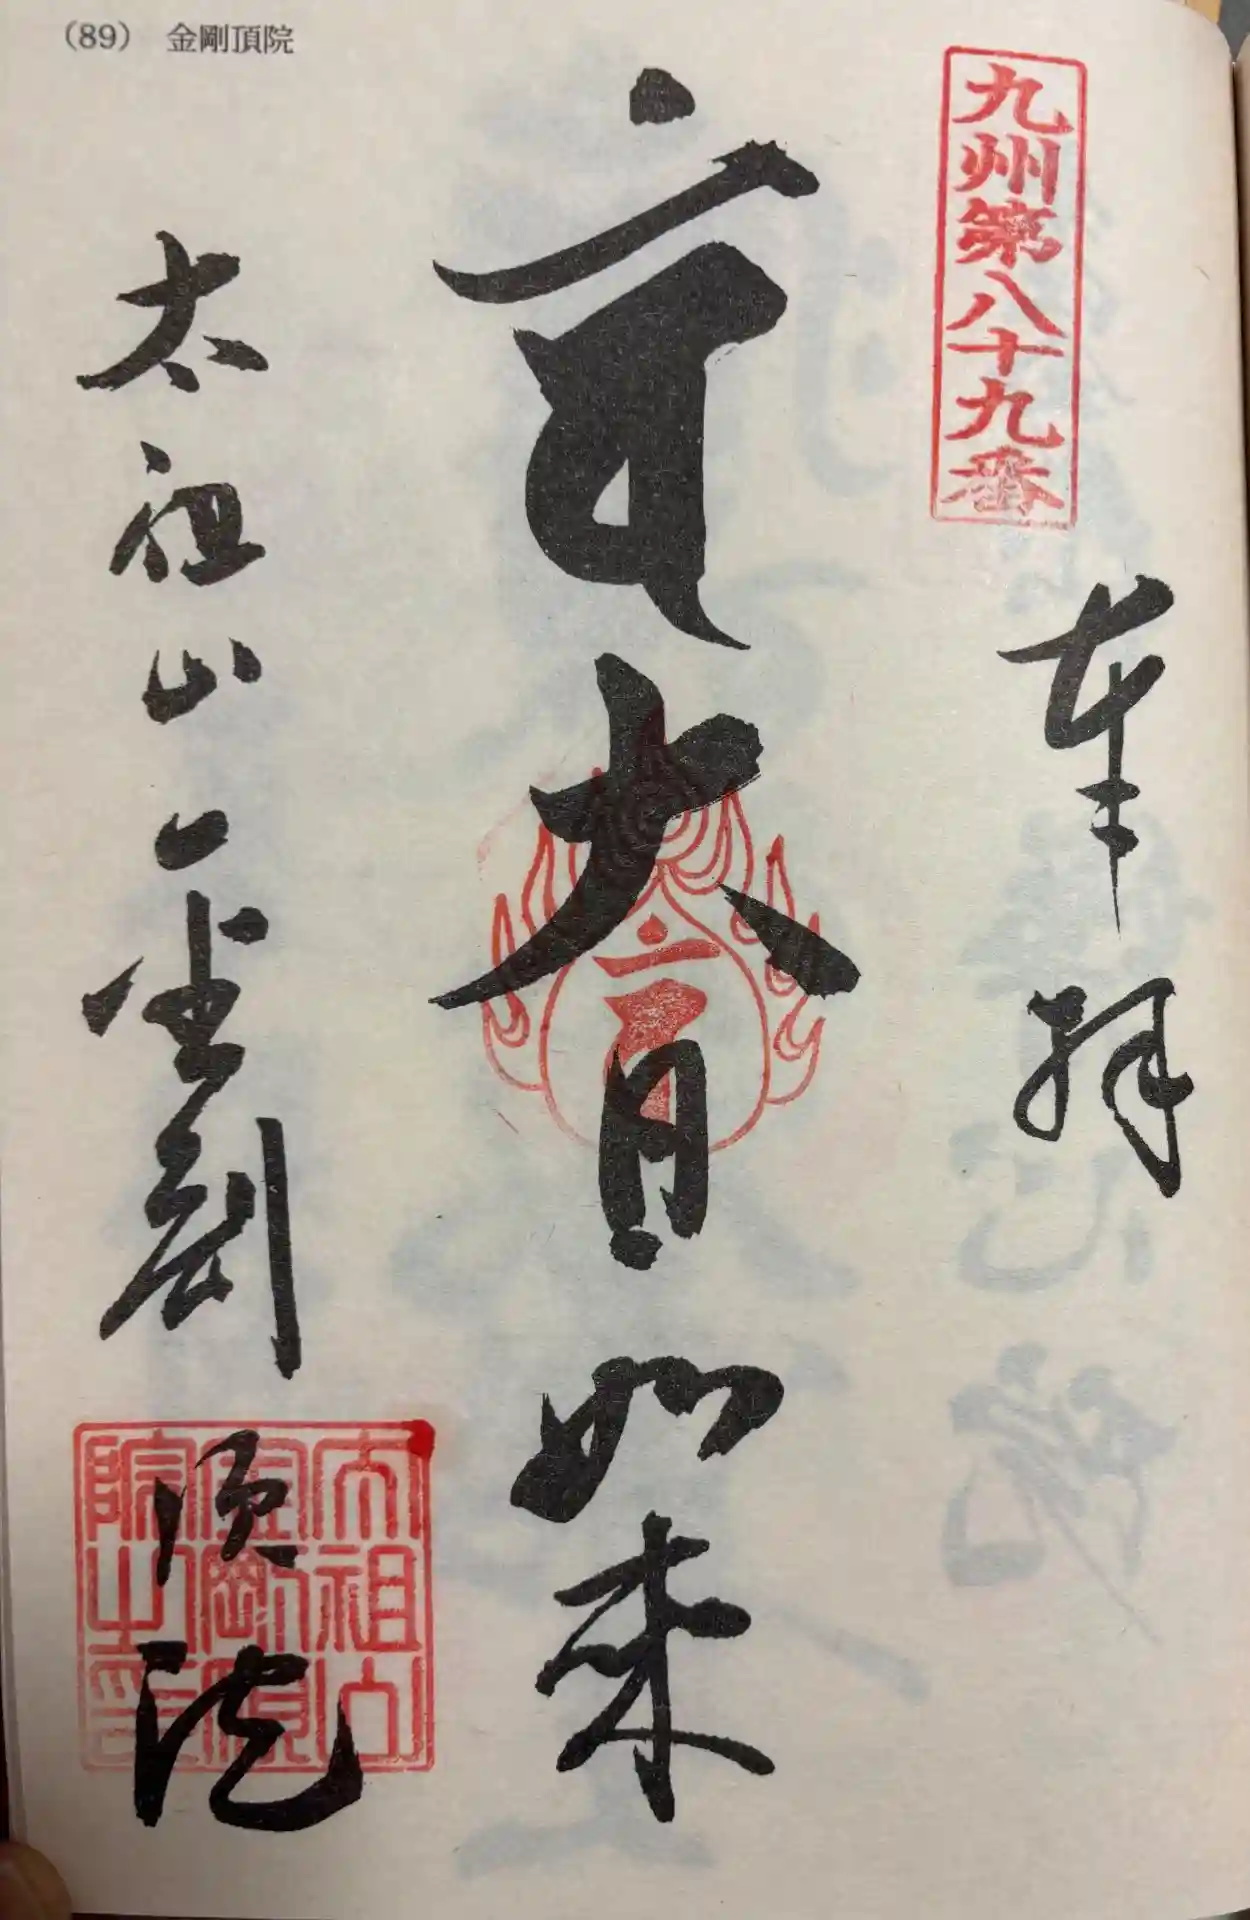 (89) 金剛頂院
九州第八十九番
奉拝
大日如来
太祖山 金剛頂院
太祖山
金剛頂
院